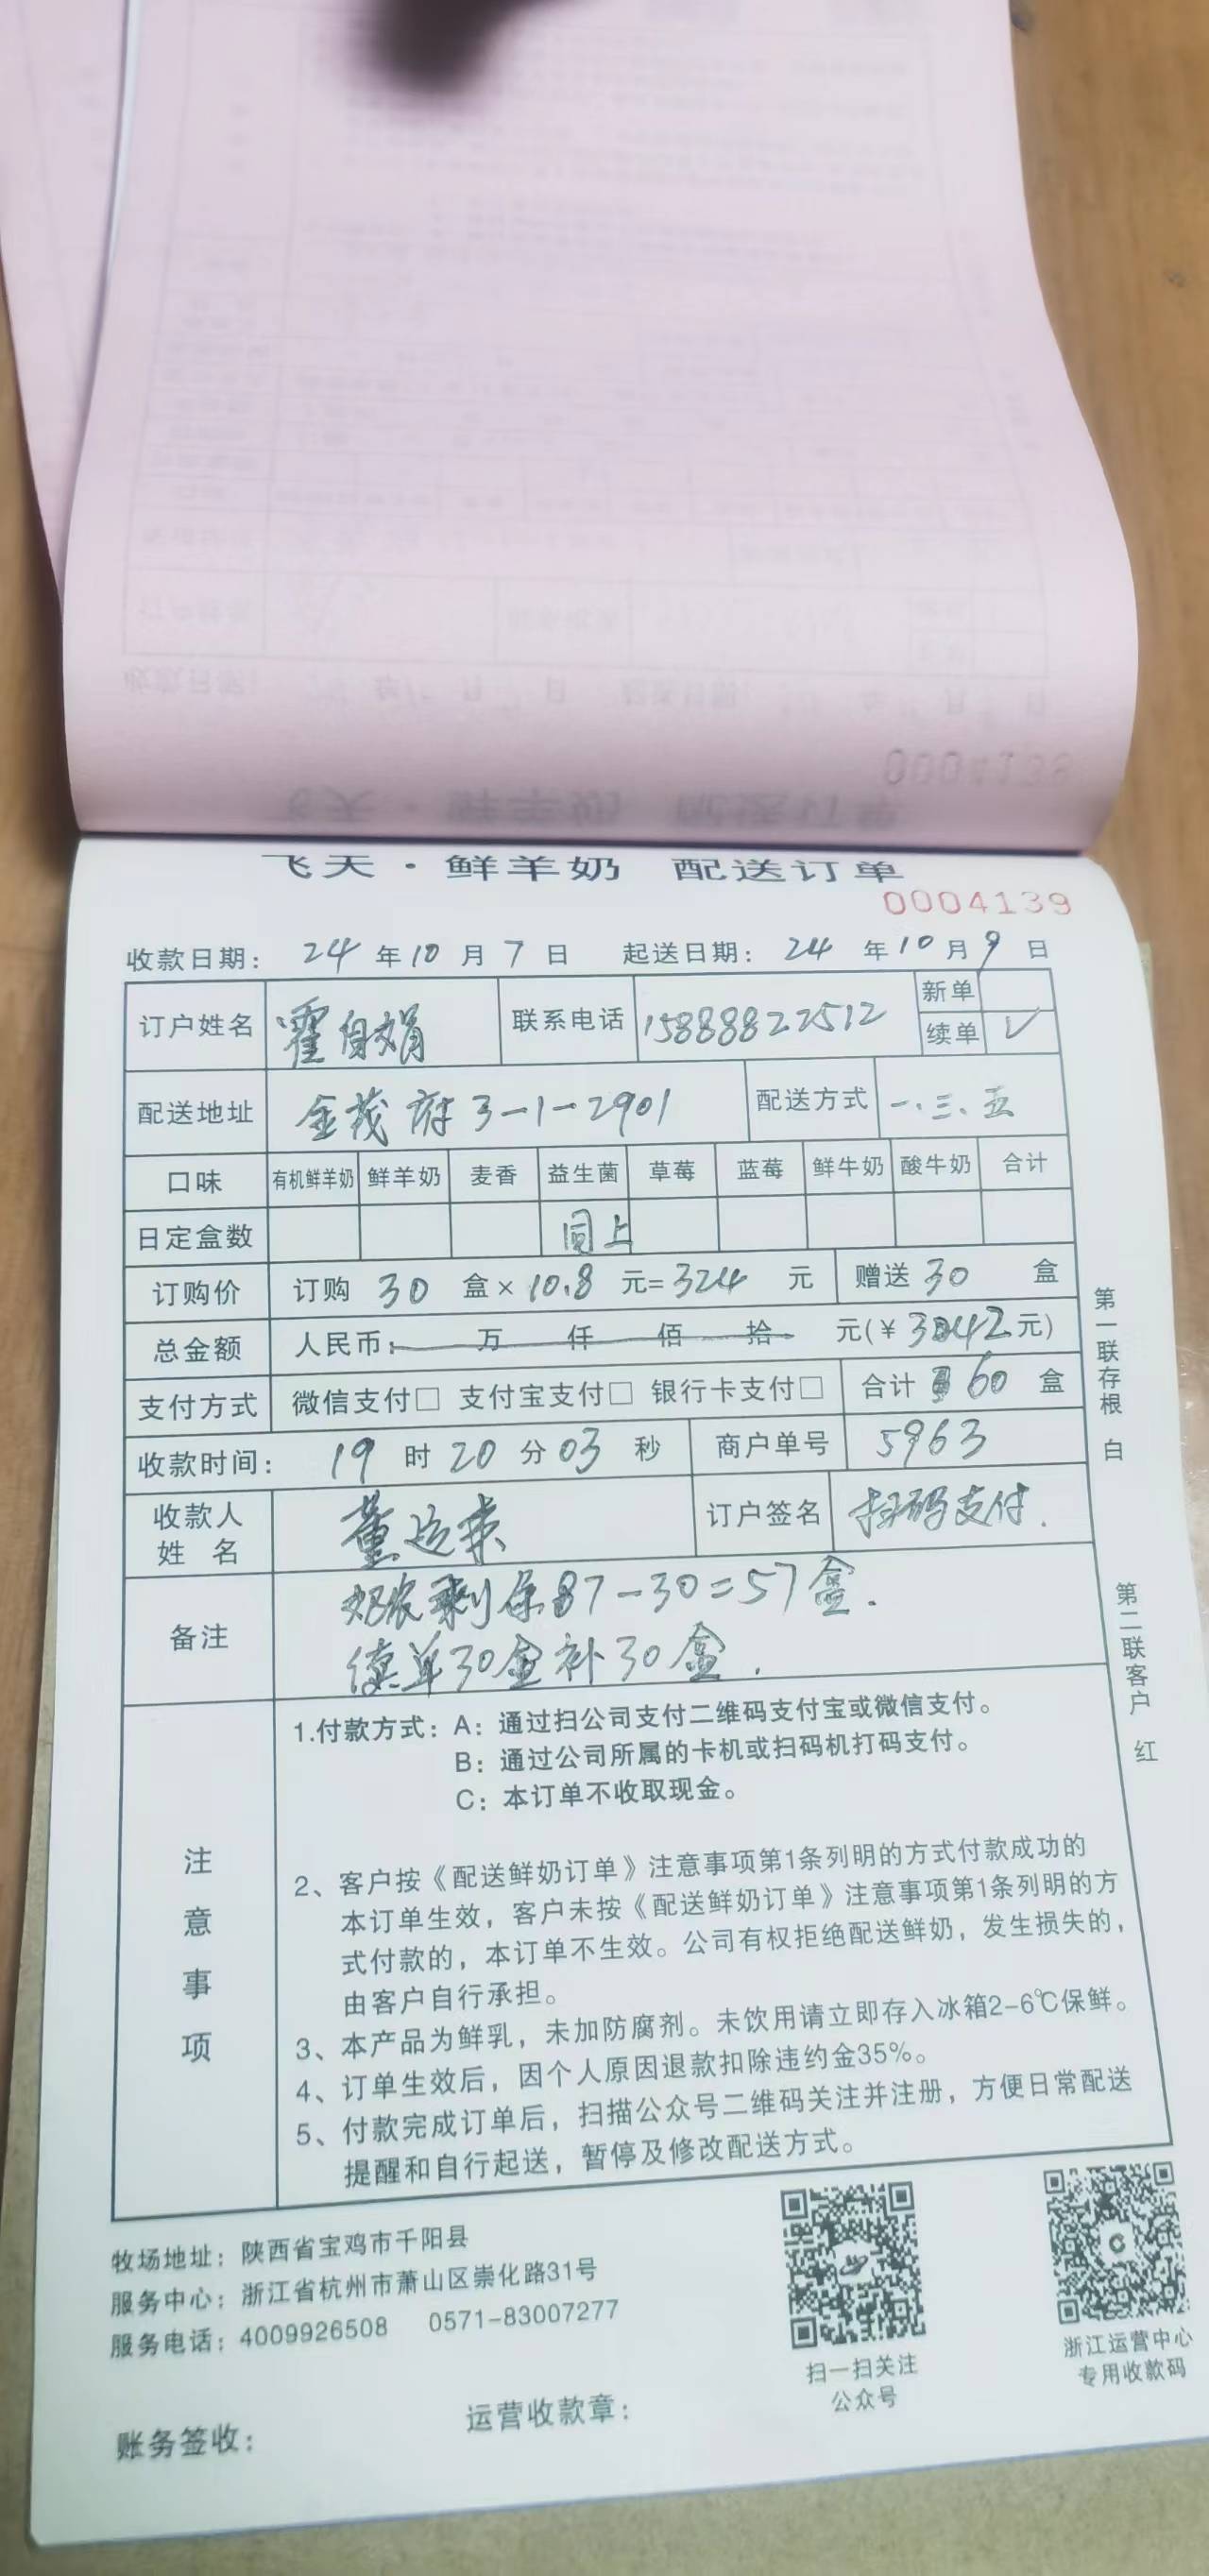 飞天·鲜羊奶 配送订单
0004139
收款日期: 24 年 10 月 7 日 起送日期: 24 年 10 月 9 日
订户姓名 霍自娟 联系电话 15888822512 新单
续单 ✓
配送地址 金茂府3-1-2901 配送方式 一、三、五
口味 有机鲜羊奶 鲜羊奶 麦香 益生菌 草莓 蓝莓 鲜牛奶 酸牛奶 合计
日定盒数 同上
订购价 订购 30 盒× 10.8 元= 324 元 赠送 30 盒
总金额 人民币: 万 仟 佰 拾 元(¥ 元)
支付方式 微信支付□ 支付宝支付□ 银行卡支付□ 合计 60 盒
收款时间: 19 时 20 分 03 秒 商户单号 5963
收款人
姓 名 董运来 订户签名 扫码支付.
备注 剩 87-30=57盒.
续单30盒补30盒.
注意事项
1.付款方式: A: 通过扫公司支付二维码支付宝或微信支付。
B: 通过公司所属的卡机或扫码机打码支付。
C: 本订单不收取现金。
2、客户按《配送鲜奶订单》注意事项第1条列明的方式付款成功的
本订单生效，客户未按《配送鲜奶订单》注意事项第1条列明的方
式付款的，本订单不生效。公司有权拒绝配送鲜奶，发生损失的，
由客户自行承担。
3、本产品为鲜乳，未加防腐剂。未饮用请立即存入冰箱2-6℃保鲜。
4、订单生效后，因个人原因退款扣除违约金35%。
5、付款完成订单后，扫描公众号二维码关注并注册，方便日常配送
提醒和自行起送，暂停及修改配送方式。
第一联存根 白
第二联客户 红
牧场地址: 陕西省宝鸡市千阳县
服务中心: 浙江省杭州市萧山区崇化路31号
服务电话: 4009926508 0571-83007277
扫一扫关注
公众号
浙江运营中心
专用收款码
账务签收:
运营收款章: